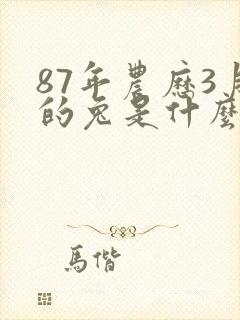 87年農曆3月
的兔是什麼
馬偕